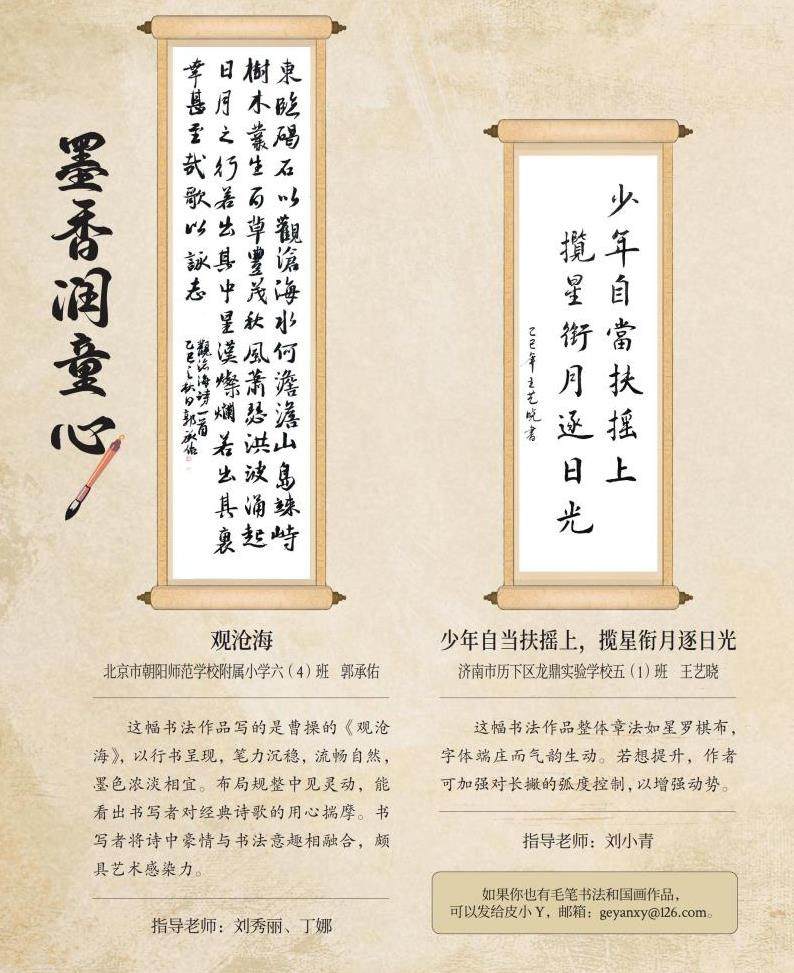 墨香润童心
東臨碣石以觀滄海水何澹澹山島竦峙
樹木叢生百草豐茂秋風蕭瑟洪波涌起
日月之行若出其中星漢燦爛若出其裏
幸甚至哉歌以詠志
觀滄海詩一首
乙巳之秋日郭承佑
观沧海
北京市朝阳师范学校附属小学六（4）班 郭承佑
这幅书法作品写的是曹操的《观沧
海》，以行书呈现，笔力沉稳，流畅自然，
墨色浓淡相宜。布局规整中见灵动，能
看出书写者对经典诗歌的用心揣摩。书
写者将诗中豪情与书法意趣相融合，颇
具艺术感染力。
指导老师：刘秀丽、丁娜
少年自當扶摇上
攬星銜月逐日光
乙巳年王艺晓書
少年自当扶摇上，揽星衔月逐日光
济南市历下区龙鼎实验学校五（1）班 王艺晓
这幅书法作品整体章法如星罗棋布，
字体端庄而气韵生动。若想提升，作者
可加强对长撇的弧度控制，以增强动势。
指导老师：刘小青
如果你也有毛笔书法和国画作品，
可以发给皮小Y，邮箱：geyanxy@126.com。